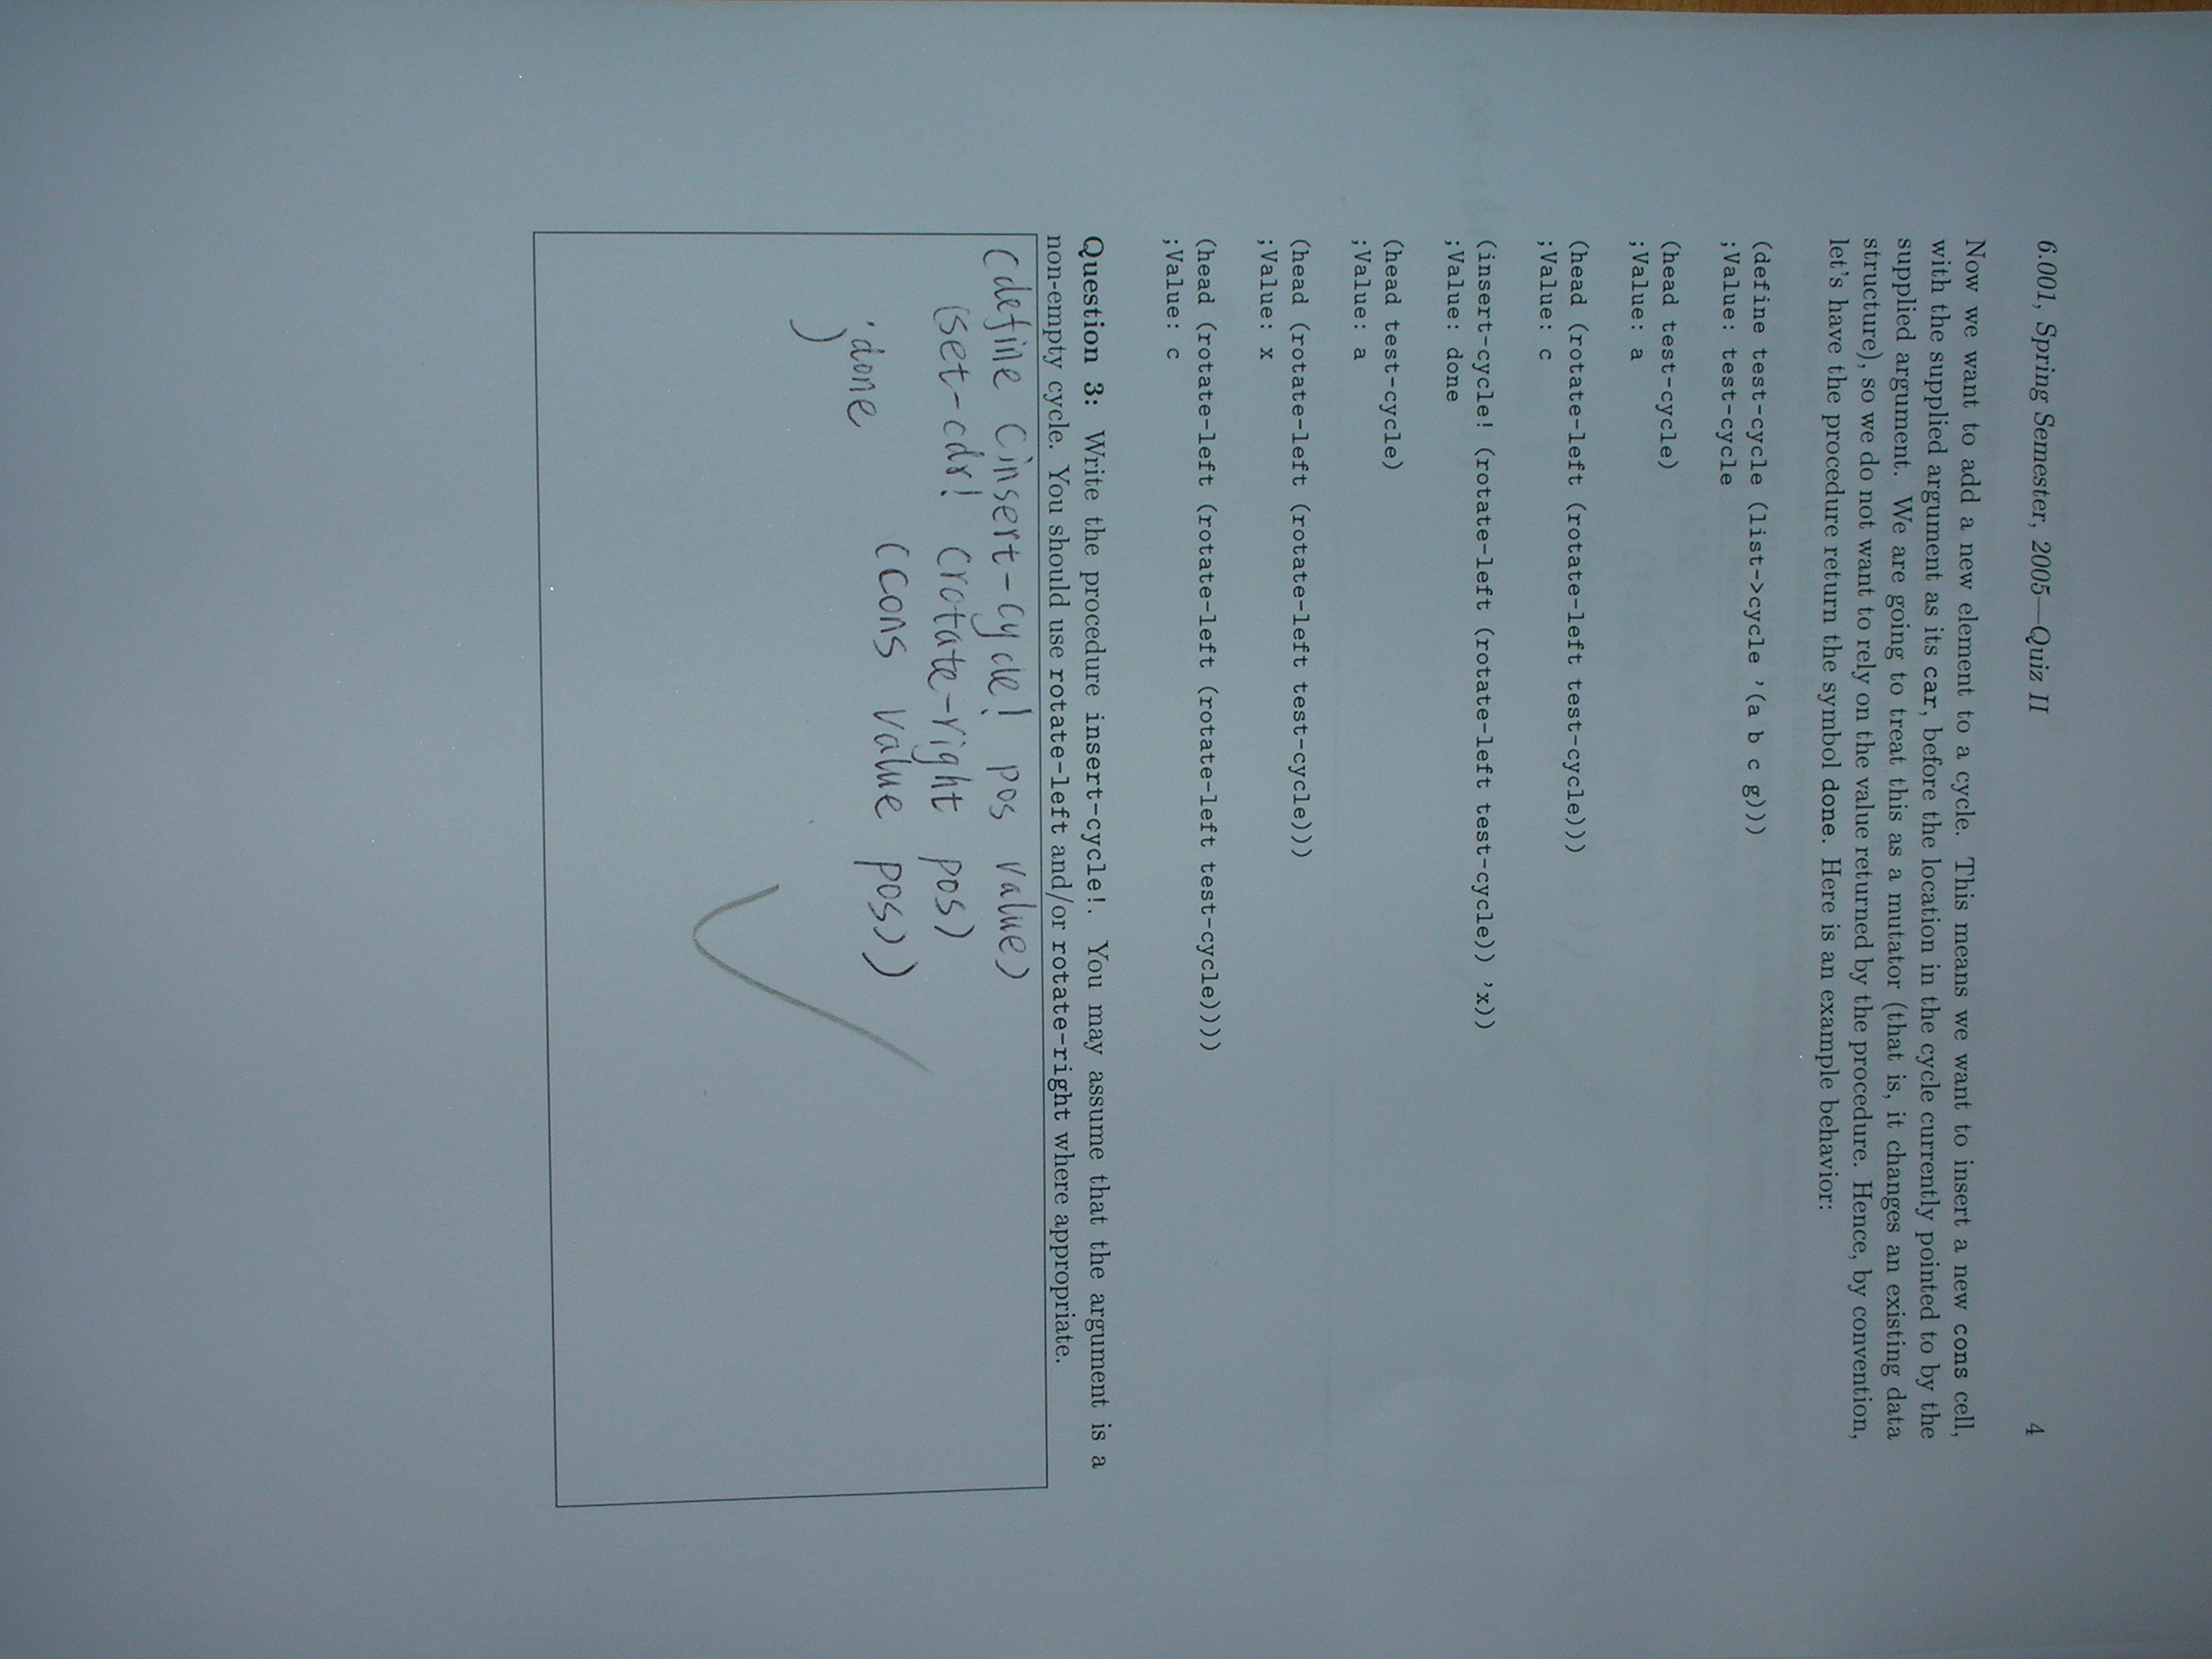 6.001, Spring Semester, 2005—Quiz II 4
Now we want to add a new element to a cycle. This means we want to insert a new cons cell,
with the supplied argument as its car, before the location in the cycle currently pointed to by the
supplied argument. We are going to treat this as a mutator (that is, it changes an existing data
structure), so we do not want to rely on the value returned by the procedure. Hence, by convention,
let's have the procedure return the symbol done. Here is an example behavior:
(define test-cycle (list->cycle '(a b c g)))
;Value: test-cycle
(head test-cycle)
;Value: a
(head (rotate-left (rotate-left test-cycle)))
;Value: c
(insert-cycle! (rotate-left (rotate-left test-cycle)) 'x))
;Value: done
(head test-cycle)
;Value: a
(head (rotate-left (rotate-left test-cycle)))
;Value: x
(head (rotate-left (rotate-left (rotate-left test-cycle))))
;Value: c
Question 3: Write the procedure insert-cycle!. You may assume that the argument is a
non-empty cycle. You should use rotate-left and/or rotate-right where appropriate.
(define (insert-cycle! pos value)
(set-cdr! (rotate-right pos)
(cons value pos))
'done
)